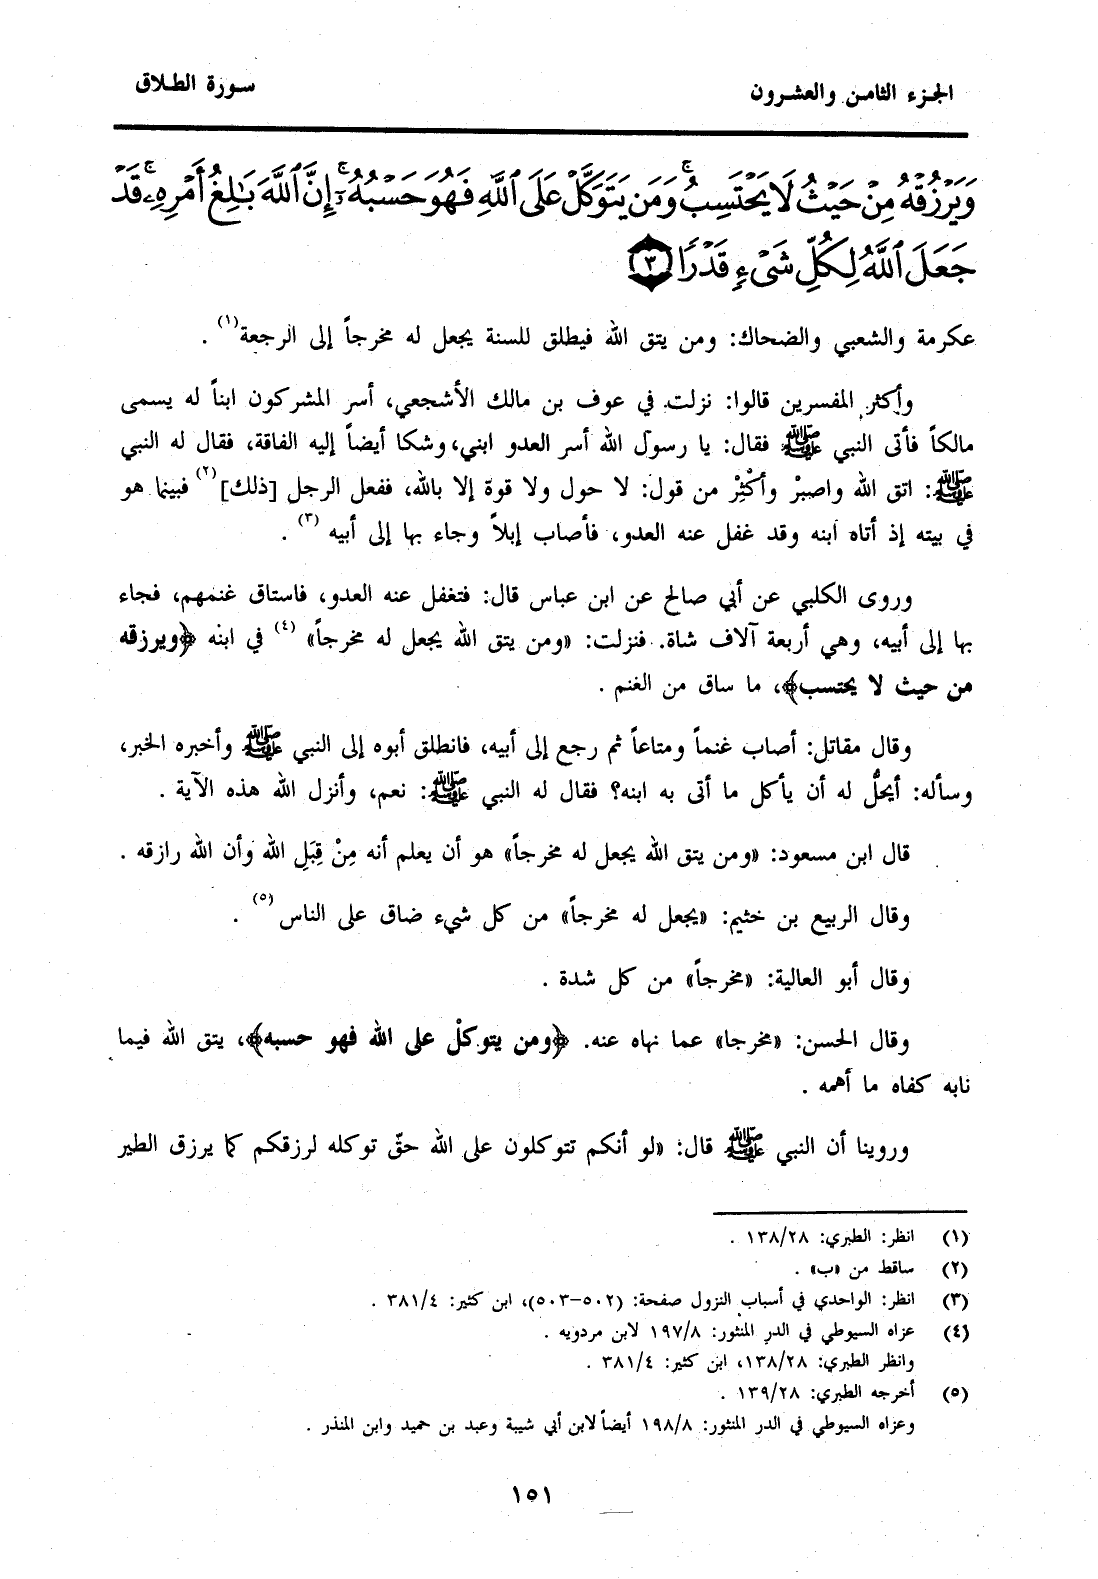 الجزء الثامن والعشرون
سورة الطلاق
وَيَرْزُقْهُ مِنْ حَيْثُ لَا يَحْتَسِبُ ۚ وَمَن يَتَوَكَّلْ عَلَى ٱللَّهِ فَهُوَ حَسْبُهُۥٓ ۚ إِنَّ ٱللَّهَ بَٰلِغُ أَمْرِهِۦ ۚ قَدْ
جَعَلَ ٱللَّهُ لِكُلِّ شَىْءٍ قَدْرًا ٣
عكرمة والشعبي والضحاك: ومن يتق الله فيطلق للسنة يجعل له مخرجاً إلى الرجعة(١) .
وأكثر المفسرين قالوا: نزلت في عوف بن مالك الأشجعي، أسر المشركون ابناً له يسمى
مالكاً فأتى النبي ﷺ فقال: يا رسول الله أسر العدو ابني، وشكا أيضاً إليه الفاقة، فقال له النبي
ﷺ: اتق الله واصبرْ وأكْثِرْ من قول: لا حول ولا قوة إلا بالله، ففعل الرجل [ذلك](٢) فبينما هو
في بيته إذ أتاه ابنه وقد غفل عنه العدو، فأصاب إبلاً وجاء بها إلى أبيه (٣) .
وروى الكلبي عن أبي صالح عن ابن عباس قال: فتغفل عنه العدو، فاستاق غنمهم، فجاء
بها إلى أبيه، وهي أربعة آلاف شاة. فنزلت: «ومن يتق الله يجعل له مخرجاً» (٤) في ابنه ﴿ويرزقه
من حيث لا يحتسب﴾، ما ساق من الغنم .
وقال مقاتل: أصاب غنماً ومتاعاً ثم رجع إلى أبيه، فانطلق أبوه إلى النبي ﷺ وأخبره الخبر،
وسأله: أيحلُّ له أن يأكل ما أتى به ابنه؟ فقال له النبي ﷺ: نعم، وأنزل الله هذه الآية .
قال ابن مسعود: «ومن يتق الله يجعل له مخرجاً» هو أن يعلم أنه مِنْ قِبَلِ الله وأن الله رازقه .
وقال الربيع بن خثيم: «يجعل له مخرجاً» من كل شيء ضاق على الناس(٥) .
وقال أبو العالية: «مخرجاً» من كل شدة .
وقال الحسن: «مخرجا» عما نهاه عنه. ﴿ومن يتوكلْ على الله فهو حسبه﴾، يتق الله فيما
نابه كفاه ما أهمه .
وروينا أن النبي ﷺ قال: «لو أنكم تتوكلون على الله حقّ توكله لرزقكم كما يرزق الطير
(١) انظر: الطبري: ١٣٨/٢٨ .
(٢) ساقط من «ب» .
(٣) انظر: الواحدي في أسباب النزول صفحة: (٥٠٢–٥٠٣)، ابن كثير: ٣٨١/٤ .
(٤) عزاه السيوطي في الدر المنثور: ١٩٧/٨ لابن مردويه .
وانظر الطبري: ١٣٨/٢٨، ابن كثير: ٣٨١/٤ .
(٥) أخرجه الطبري: ١٣٩/٢٨ .
وعزاه السيوطي في الدر المنثور: ١٩٨/٨ أيضاً لابن أبي شيبة وعبد بن حميد وابن المنذر .
١٥١